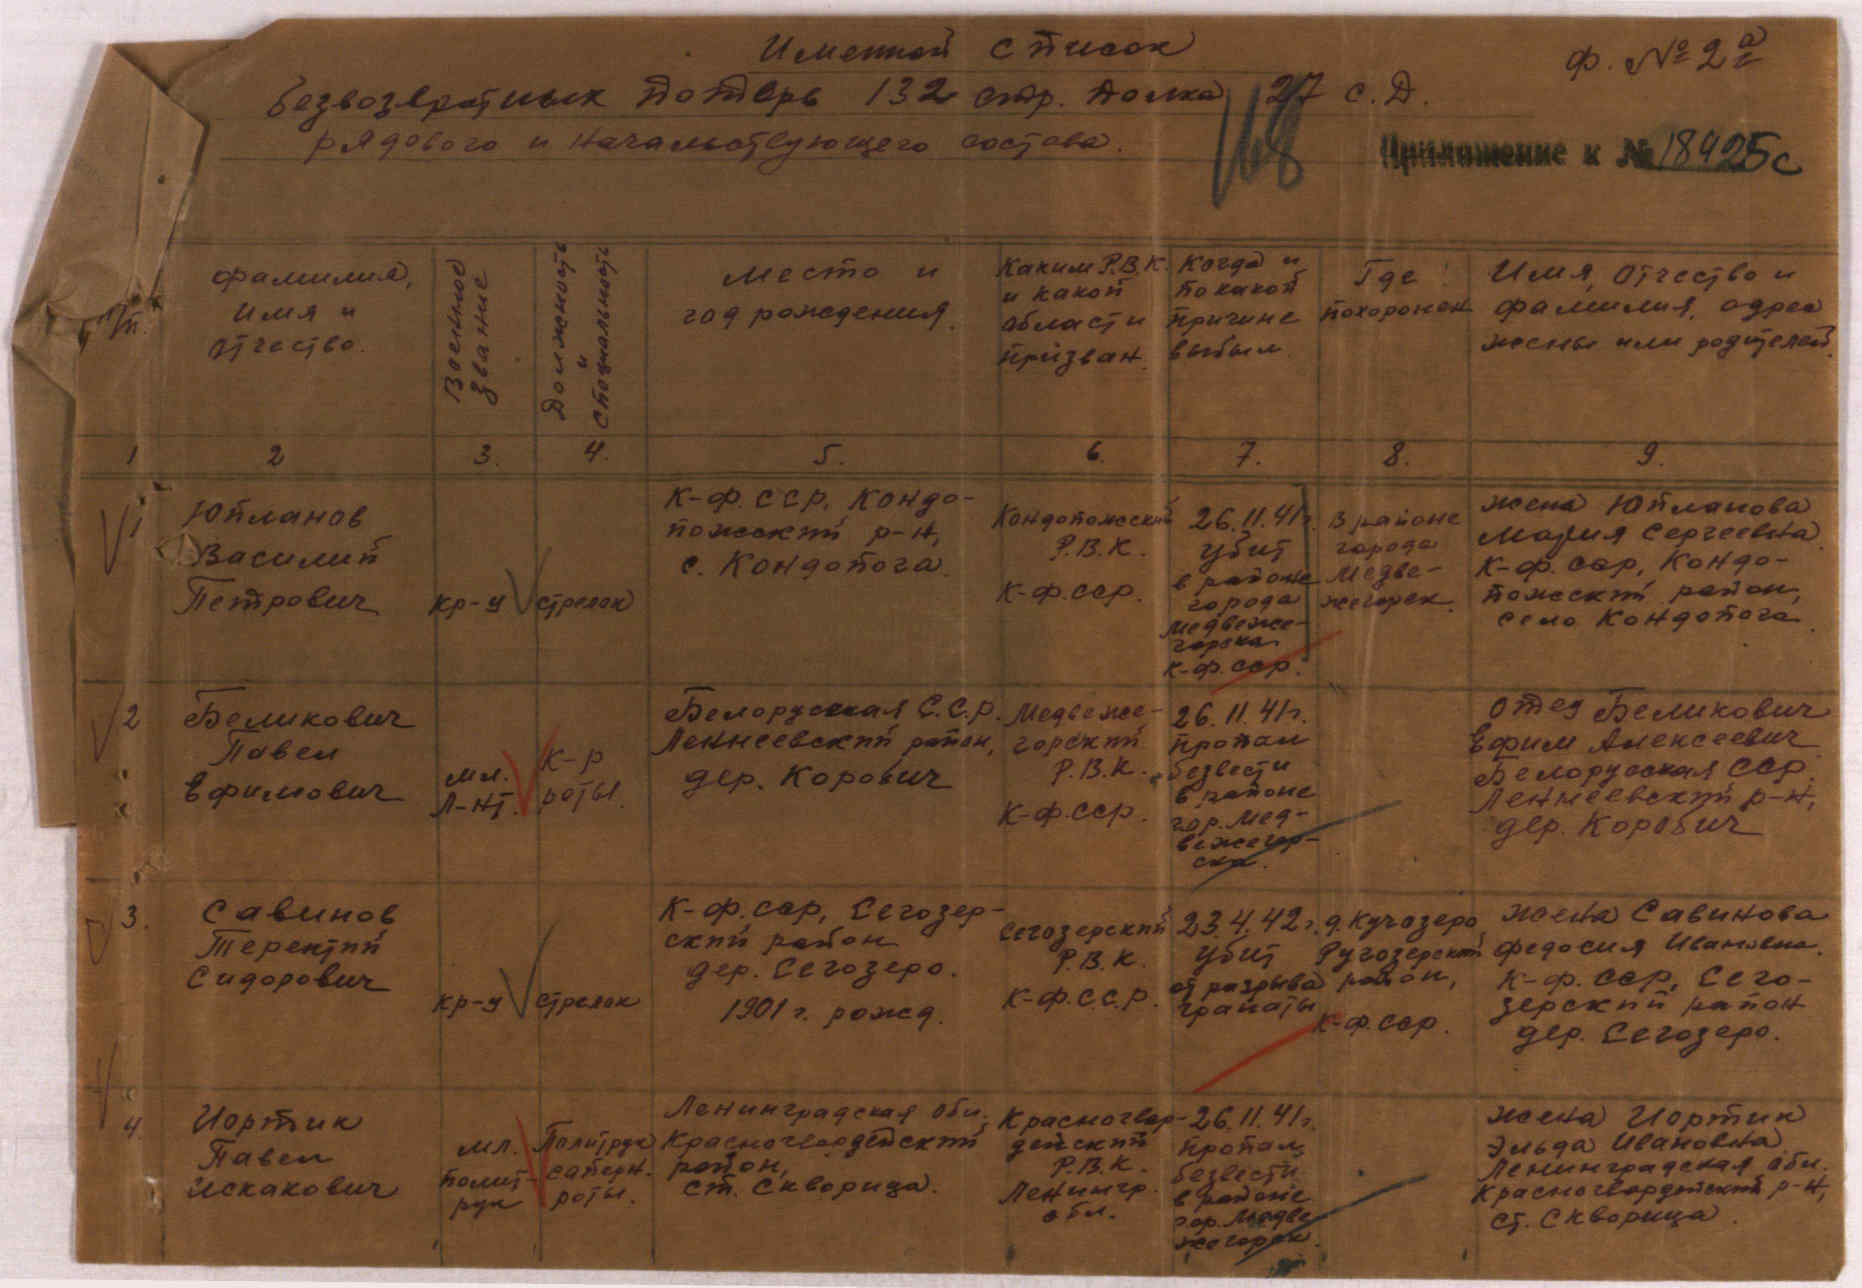 Именной список
ф. № 2а
безвозвратных потерь 132 стр. полка 27 с.Д.
рядового и начальствующего состава.
Приложение к № 18425с
168
п.
фамилия,
имя и
отчество.
Военное
звание
Должность
и
специальность
место и
год рождения.
Каким Р.В.К.
и какой
области
призван.
Когда и
по какой
причине
выбыл
Где
похоронен
Имя, отчество и
фамилия, адрес
жены или родителей.
1 2 3. 4. 5. 6. 7. 8. 9.
1
Юпланов
Василий
Петрович
кр-ц
стрелок
К-ф.ССР, Кондо-
пожский р-н,
с. Кондопога.
Кондопожский
Р.В.К.
К-ф.ССР.
26.11.41г.
убит
в районе
города
медвеже-
горска
К-ф.ССР.
в районе
города
Медве-
жегорск.
жена Юпланова
Мария Сергеевна.
К-ф.ССР, Кондо-
пожский район,
село Кондопога.
2
Беликович
Павел
Ефимович
мл.
л-нт.
к-р
роты.
Белорусская С.С.Р.
Леннеевский район,
дер. Корович
Медвеже-
горский
Р.В.К.
К-ф.ССР.
26.11.41г.
пропал
безвести
в районе
гор. Мед-
вежегор-
ска.
отец Беликович
Ефим Алексеевич
Белорусская ССР.
Леннеевский р-н,
дер. Корович
3.
Савинов
Терентий
Сидорович
кр-ц
стрелок
К-ф.ССР, Сегозер-
ский район
дер. Сегозеро.
1901 г. рожд.
Сегозерский
Р.В.К.
К-ф.С.С.Р.
23.4.42г.
убит
от разрыва
гранаты
д. Кучозеро,
Ругозерский
район,
К-ф.ССР.
жена Савинова
Федосия Ивановна.
К-ф.ССР, Сего-
зерский район
дер. Сегозеро.
4.
Иортик
Павел
Искакович
мл.
полит-
рук
Политрук
саперн.
роты.
Ленинградская обл.,
Красногвордейский
район,
ст. Скворица.
Красногвор-
дейский
Р.В.К.
Ленингр.
обл.
26.11.41г.
пропал
безвести
в районе
гор. Медве
жегорск.
жена Иортик
Эльда Ивановна
Ленинградская обл.
Красногвордейский р-н,
ст. Скворица.